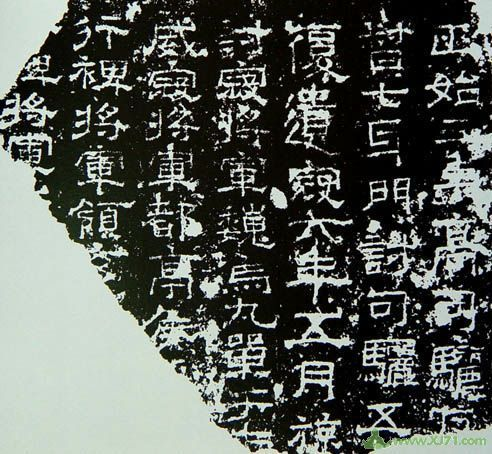 正始三年高句驪反
督七牙門討句驪五
復遺寇六年五月旋
討寇將軍魏烏丸單于
威寇將軍都亭侯
行裨將軍領
裨將軍
www.XJ71.com